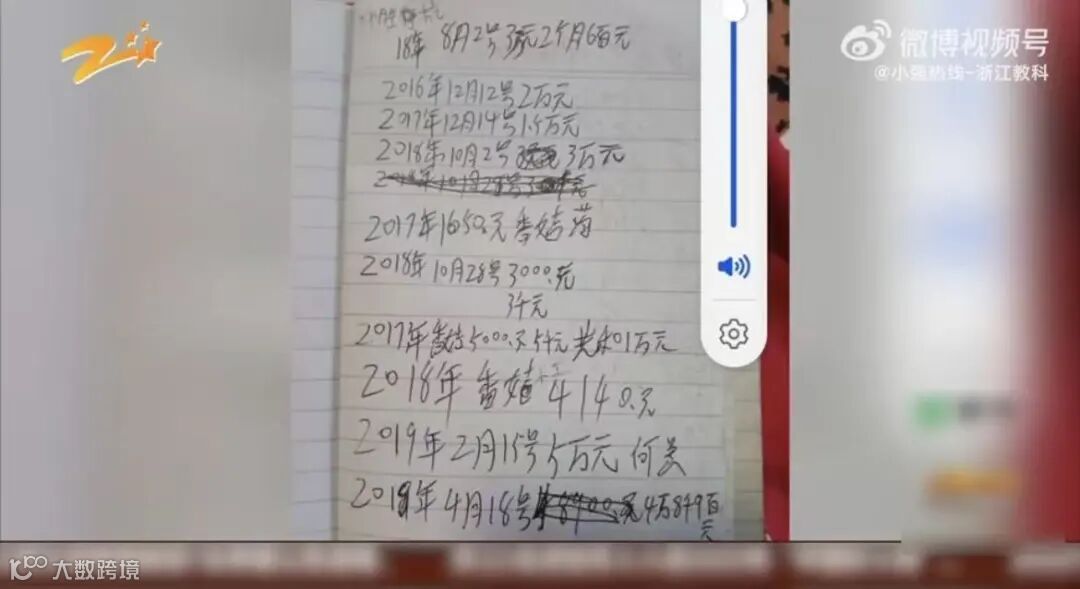 微博视频号
@小强热线-浙江教科
18年 8月2号3万元2个月6百元
2016年12月12号2万元
2017年12月14号1.5万元
2018年10月2号 3万元
2017年1650.元番茄苗
2018年10月28号3000.元
3千元
2017年 5000.元5千元 1万元
2018年番 4140.元
2019年2月15号5万元何关
2019年4月18号 4万8千9百
元
大数跨境